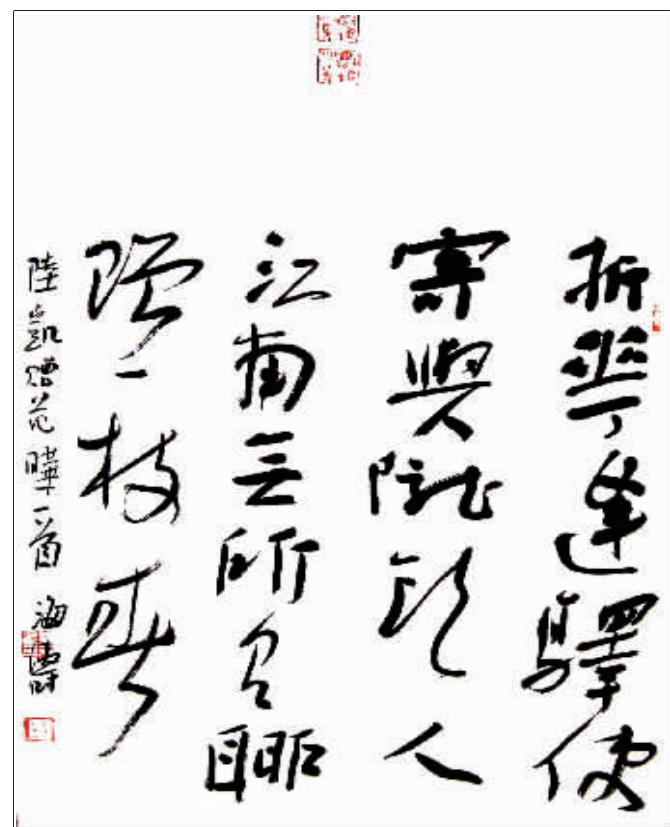 折華逢驛使
寄與隴頭人
江南无所有聊
贈一枝春
陸凱贈范曄一首 海濤